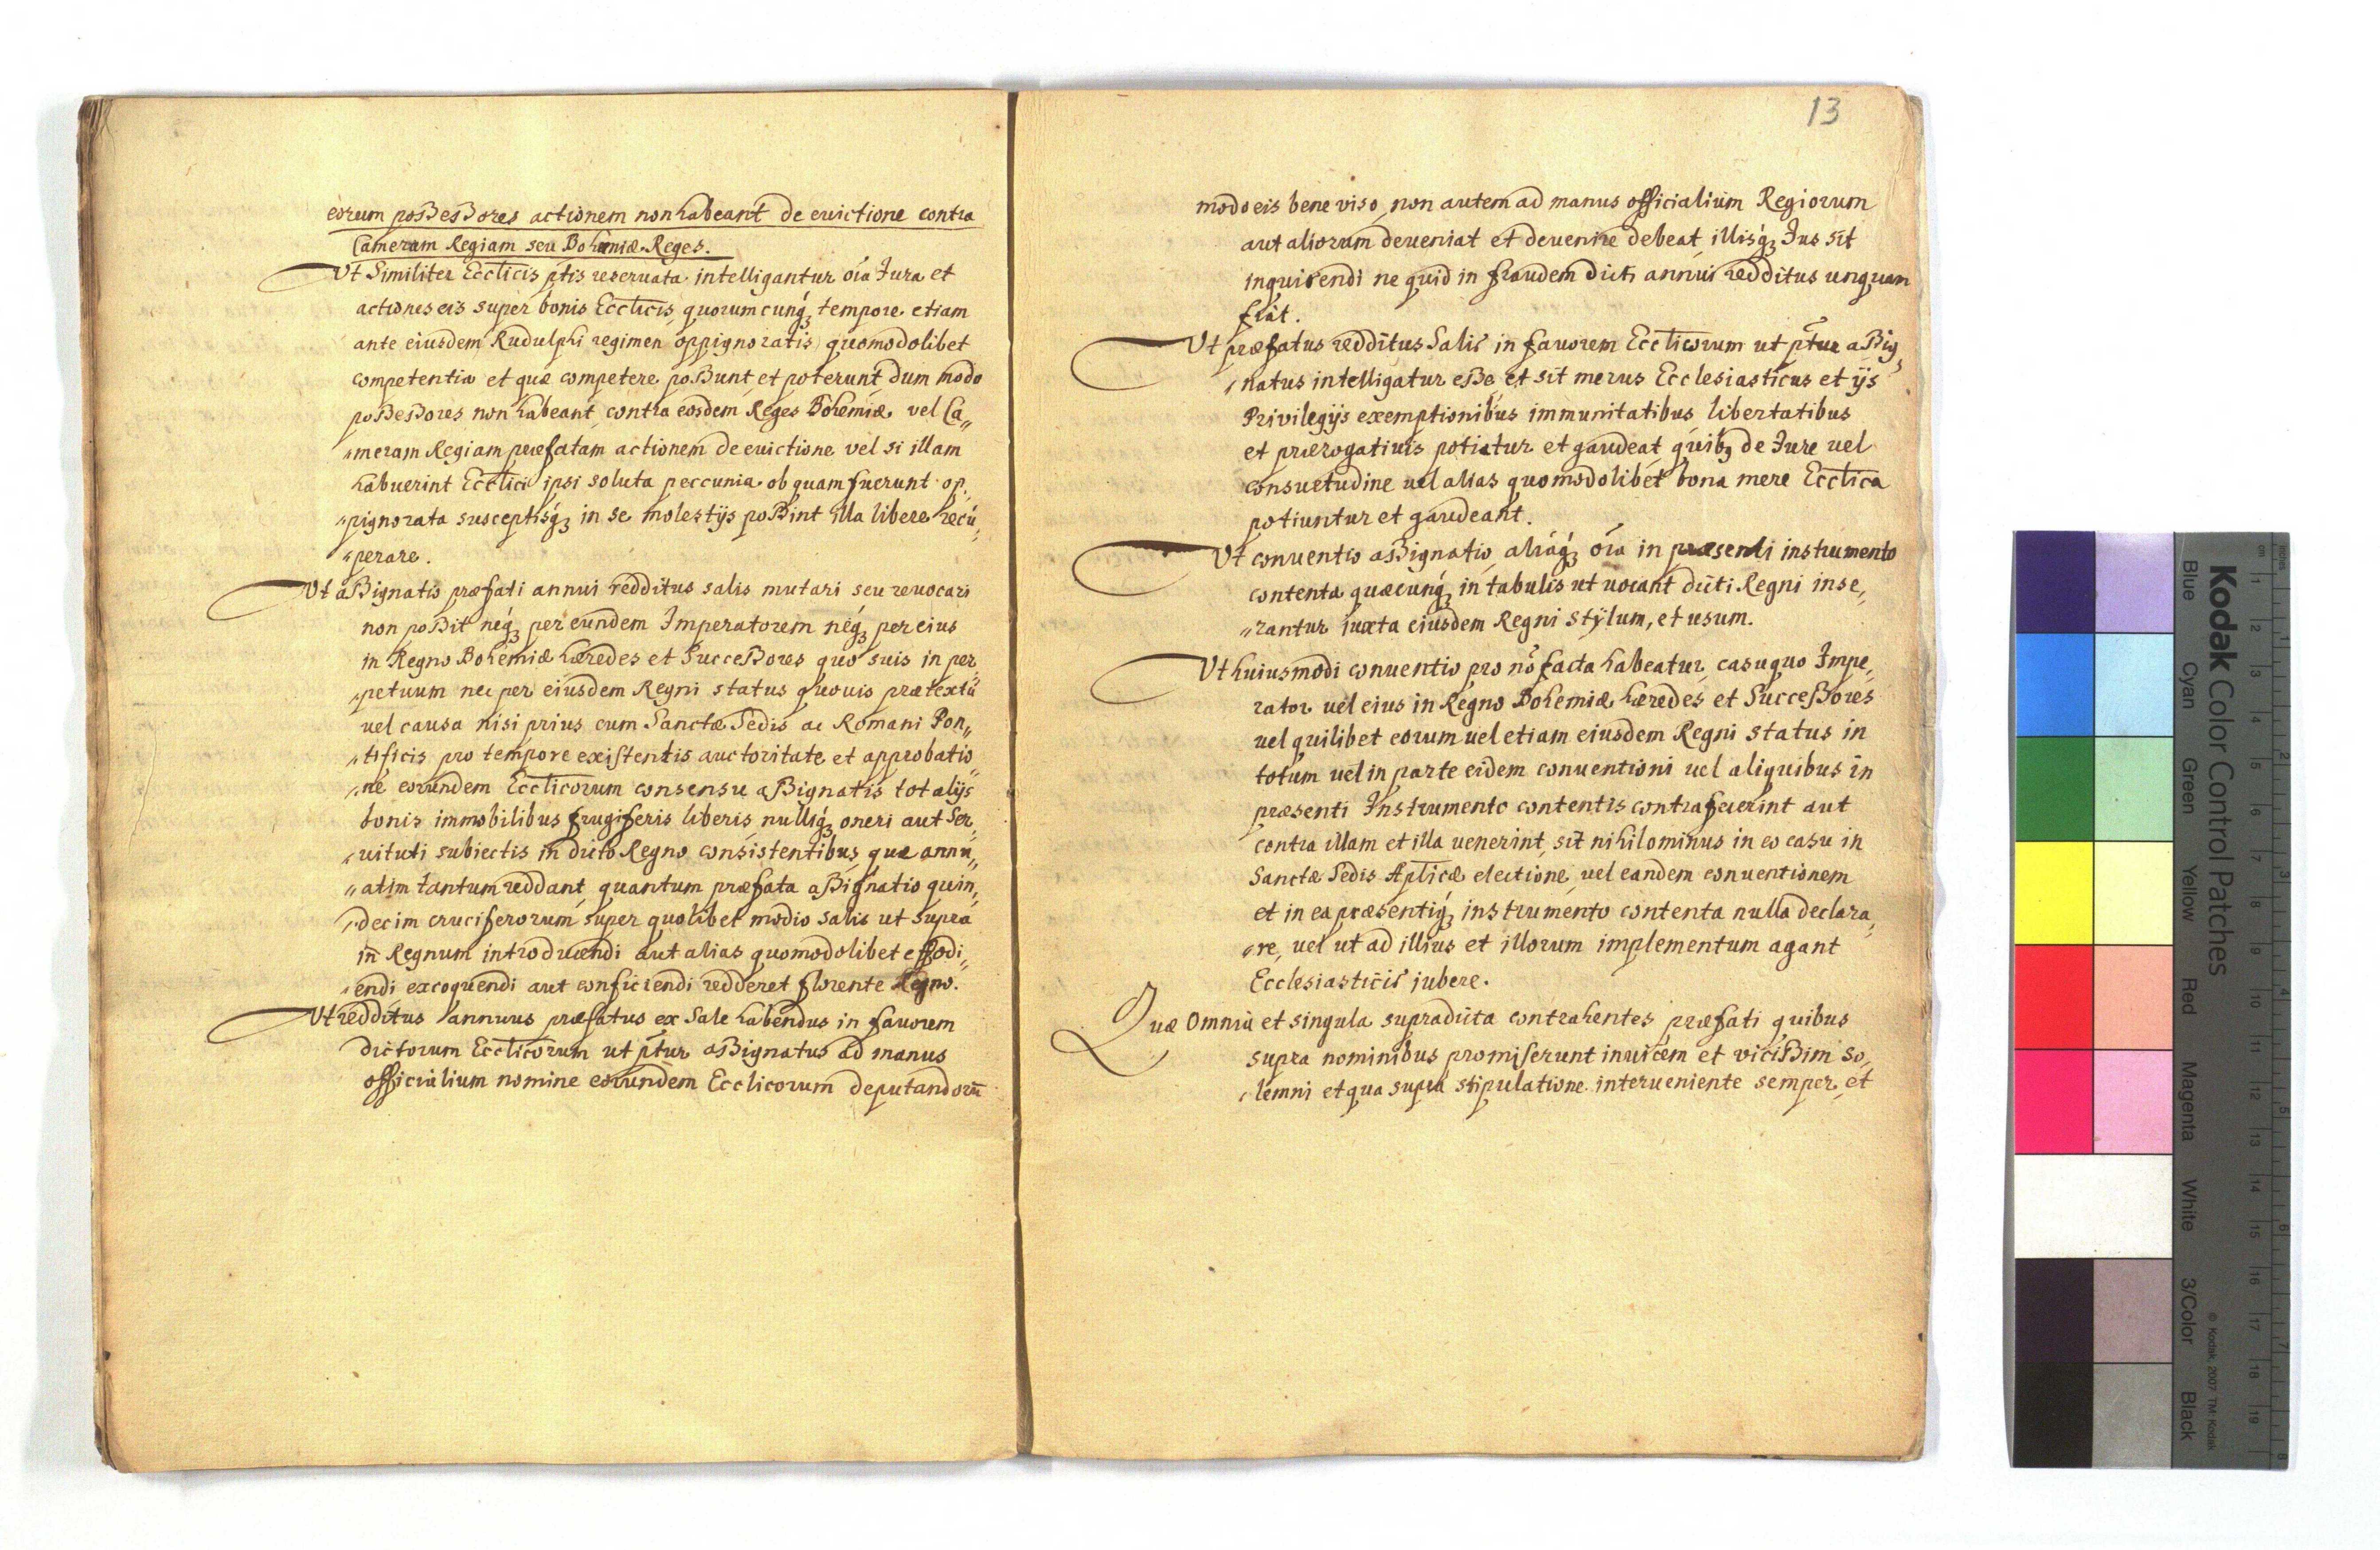 eorum possessores actionem non habeant de euictione contra
Cameram Regiam seu Bohemiæ Reges.
Ut Similiter Ecclicis ptis reseruata intelligantur oia Jura et
actiones eis super bonis Ecclicis, quorumcunq; tempore etiam
ante eiusdem Rudulphi regimen oppignoratis quomodolibet
competentia et quæ competere possunt et poterunt dum modo
possessores non habeant contra eosdem Reges Bohemiæ vel Ca„
„meram Regiam præfatam actionem de euictione vel si illam
habuerint Ecclici ipsi soluta peccunia ob quam fuerunt op„
„pignorata susceptisq; in se molestijs possint illa libere recu„
„perare.
Ut assignatio præfati annui redditus salis mutari seu reuocari
non possit neq; per eundem Imperatorem neq; per eius
in Regno Bohemiæ hæredes et Successores quo suis in per„
„petuum nec per eiusdem Regni status quouis prætextu
uel causa nisi prius cum Sanctæ Sedis ac Romani Pon„
„tificis pro tempore existentis auctoritate et approbatio„
„ne eorundem Ecclicorum consensu assignatis tot alijs
bonis immobilibus frugiferis liberis nulliq; oneri aut Ser„
„uituti subiectis in dicto Regno consistentibus quæ annu„
„atim tantum reddant quantum præfata assignatio quin„
„decim cruciferorum super quolibet modio salis ut supra
in Regnum introducendi aut alias quomodolibet effodi„
„endi excoquendi aut conficiendi redderet florente Regno.
Ut redditus annuus præfatus ex Sale habendus in fauorem
dictorum Ecclicorum ut ptur assignatus ad manus
officialium nomine eorundem Ecclicorum deputandorū
13
modo eis bene viso, non autem ad manus officialium Regiorum
aut aliorum deueniat et deuenire debeat illisq; Jus sit
inquirendi ne quid in fraudem dicti annui redditus unquam
fiat.
Ut præfatus redditus Salis in fauorem Ecclicorum ut ptur assig„
„natus intelligatur esse et sit merus Ecclesiasticus et ijs
Privilegijs exemptionibus immunitatibus libertatibus
et prærogatiuis potiatur et gaudeat quib9 de Jure uel
consuetudine uel alias quomodolibet bona mere Ecclica
potiuntur et gaudeant.
Ut conuentio assignatio aliaq; oia in præsenti instrumento
contenta quæcunq; in tabulis ut uocant dicti Regni inse„
„rantur iuxta eiusdem Regni stylum, et usum.
Ut huiusmodi conuentio pro nō facta habeatur casu quo Impe„
rator uel eius in Regno Bohemiæ hæredes et Successores
uel quilibet eorum uel etiam eiusdem Regni status in
totum uel in parte eidem conuentioni uel aliquibus in
præsenti Instrumento contentis contrafecerint aut
contra illam et illa uenerint, sit nihilominus in eo casu in
Sanctæ Sedis Aplicæ electione uel eandem conuentionem
et in ea præsentiq; instrumento contenta nulla declara„
„re, uel ut ad illius et illorum implementum agant
Ecclesiasticis iubere.
Quæ Omnia et singula supradicta contrahentes præfati quibus
supra nominibus promiserunt inuicem et vicissim so„
„lemni et qua supra stipulatione interueniente semper et
Kodak Color Control Patches
Blue Cyan Green Yellow Red Magenta White 3/Color Black
© Kodak, 2007 TM: Kodak